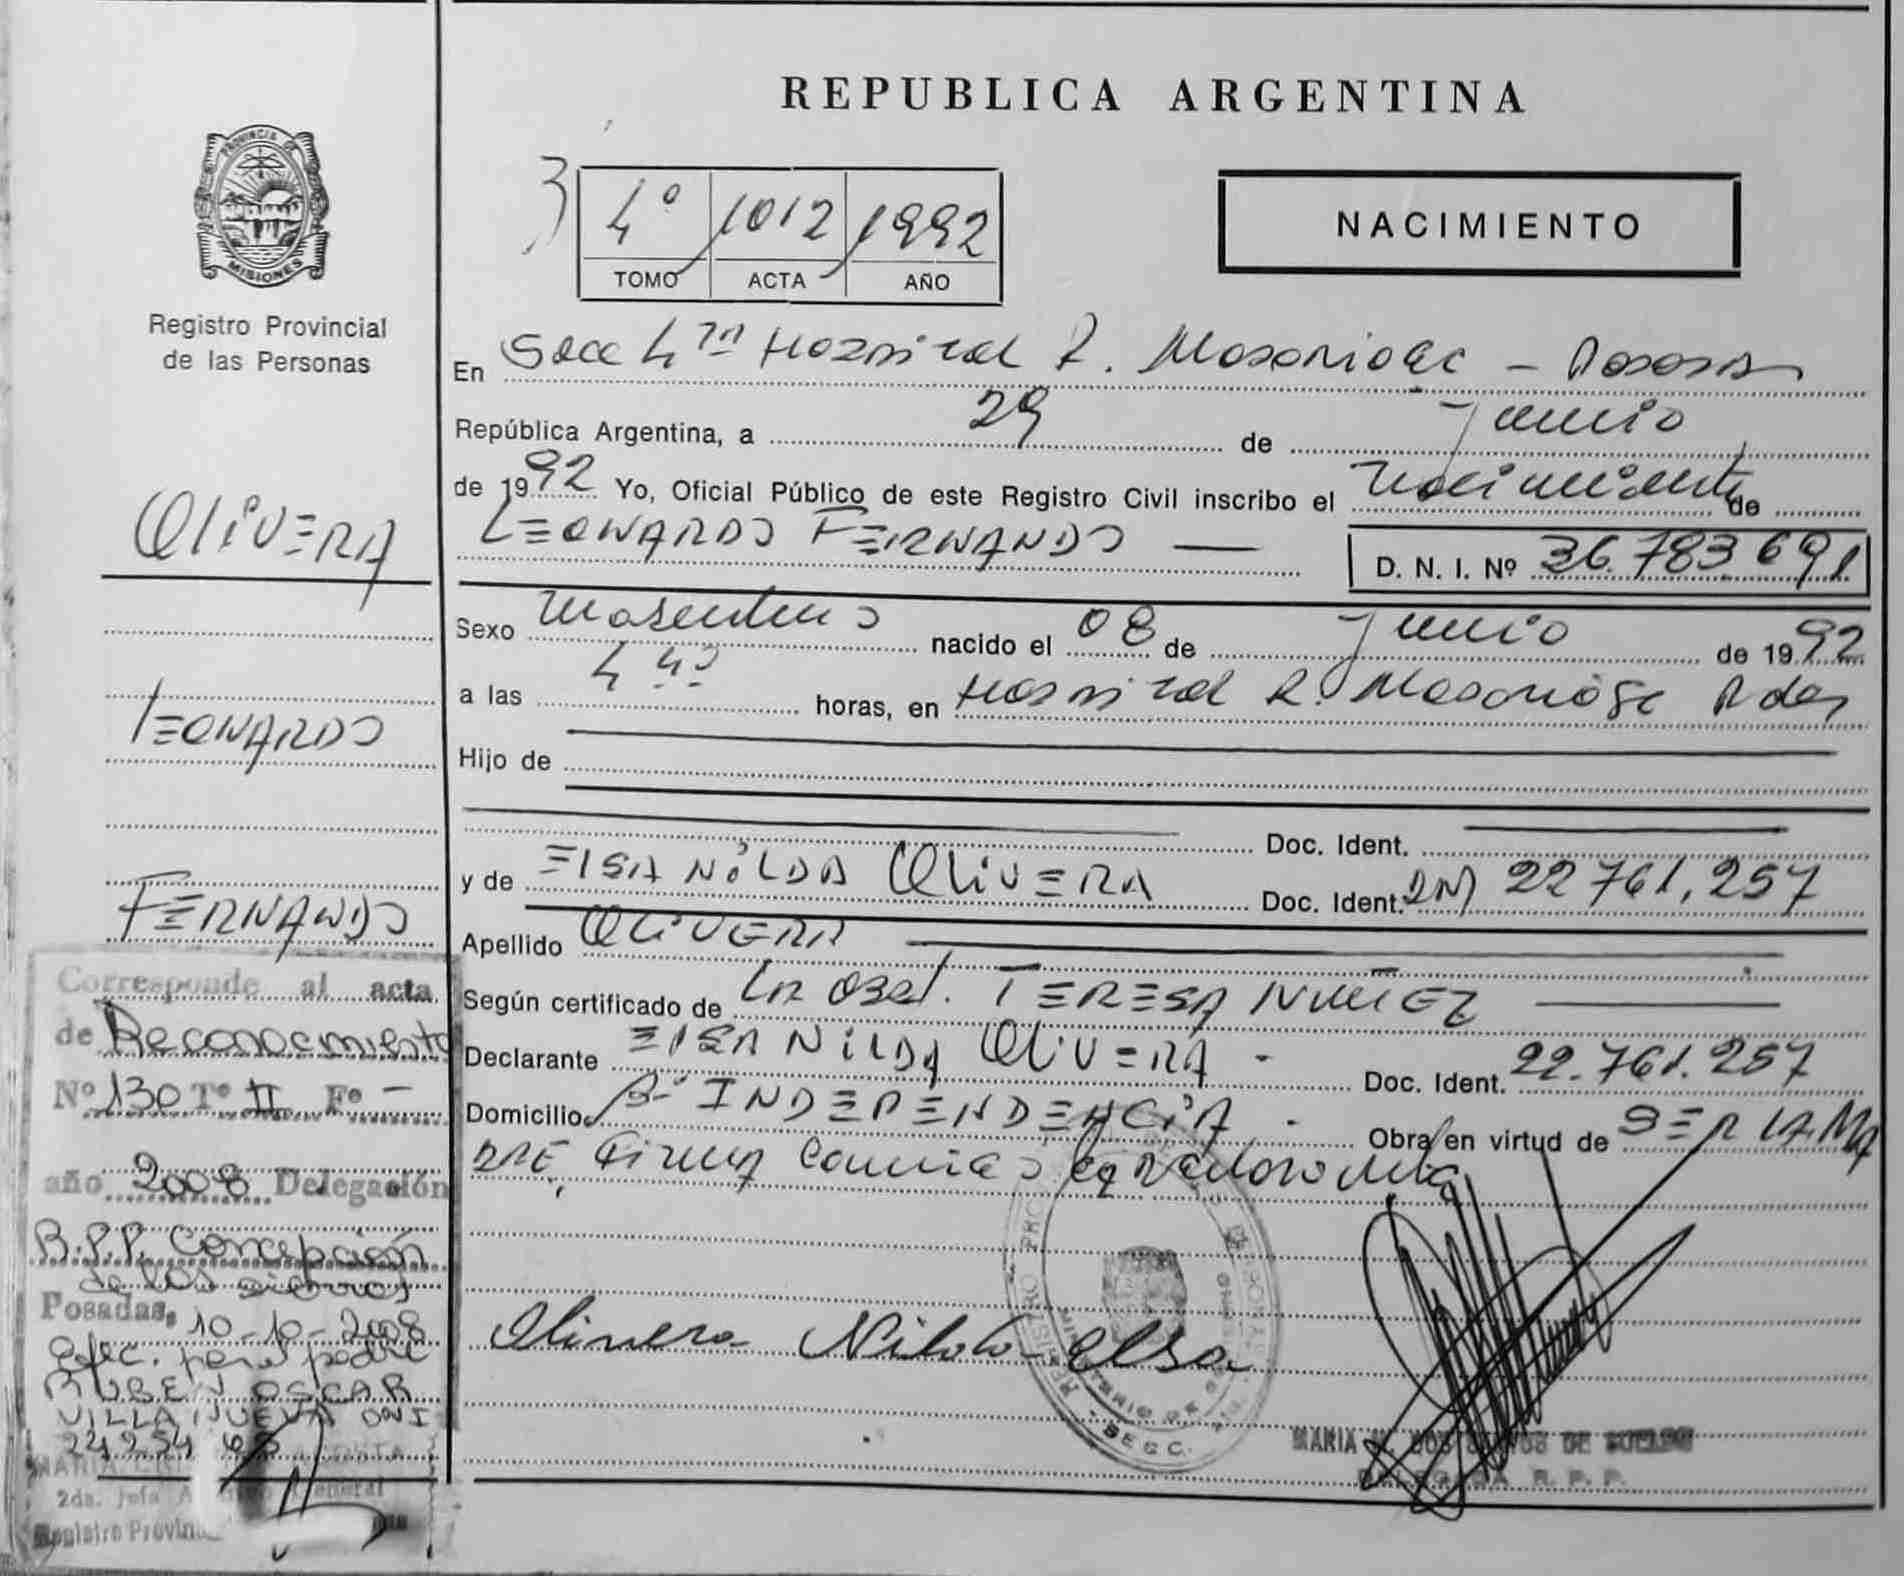 REPUBLICA ARGENTINA
PROVINCIA DE
MISIONES
Registro Provincial
de las Personas
4º 1012 1992
TOMO ACTA AÑO
NACIMIENTO
En Secc 4ta Hospital R. Madariaga - Posadas
República Argentina, a 29 de junio
de 1992 Yo, Oficial Público de este Registro Civil inscribo el nacimiento de
LEONARDO FERNANDO
D. N. I. Nº 36.783.691
Sexo masculino nacido el 08 de junio de 1992
a las 4 horas, en Hospital R. Madariaga Pdas
Hijo de
Doc. Ident.
y de ELSA NILDA OLIVERA Doc. Ident. DNI 22.761.257
Apellido OLIVERA
Según certificado de La Obst. TERESA NUÑEZ
Declarante ELSA NILDA OLIVERA - Doc. Ident. 22.761.257
Domicilio Bº INDEPENDENCIA - Obra en virtud de SER LA MA
DRE Firma conmigo
Olivera Nilda Elsa
MARIA
DELEGADA R. P. P.
OLIVERA
LEONARDO
FERNANDO
Corresponde al acta
de Reconocimiento
Nº 130 Tº II Fº -
año 2008 Delegación
R.P.P. Concepción
de la
Posadas, 10-10-2008
Efec. por el padre
RUBEN OSCAR
VILLANUEVA DNI
2da. Jefa
Registro Provin